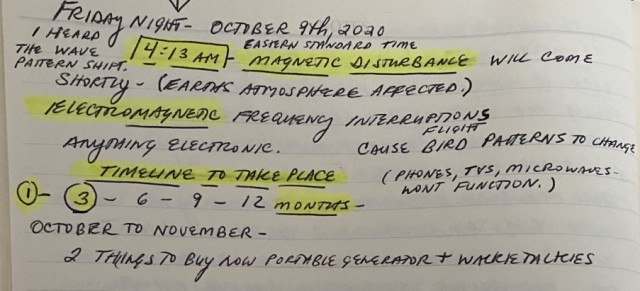 FRIDAY NIGHT- OCTOBER 9th, 2020
I HEARD THE WAVE PATTERN SHIFT.
4:13 AM - EASTERN STANDARD TIME
MAGNETIC DISTURBANCE WILL COME
SHORTLY - (EARTHS ATMOSPHERE AFFECTED.)
ELECTROMAGNETIC FREQUENCY INTERRUPTIONS
ANYTHING ELECTRONIC. CAUSE BIRD FLIGHT PATTERNS TO CHANGE
TIMELINE TO TAKE PLACE (PHONES, TVS, MICROWAVES-
WONT FUNCTION.)
1 - 3 - 6 - 9 - 12 MONTHS -
OCTOBER TO NOVEMBER -
2 THINGS TO BUY NOW PORTABLE GENERATOR + WALKIE TALKIES